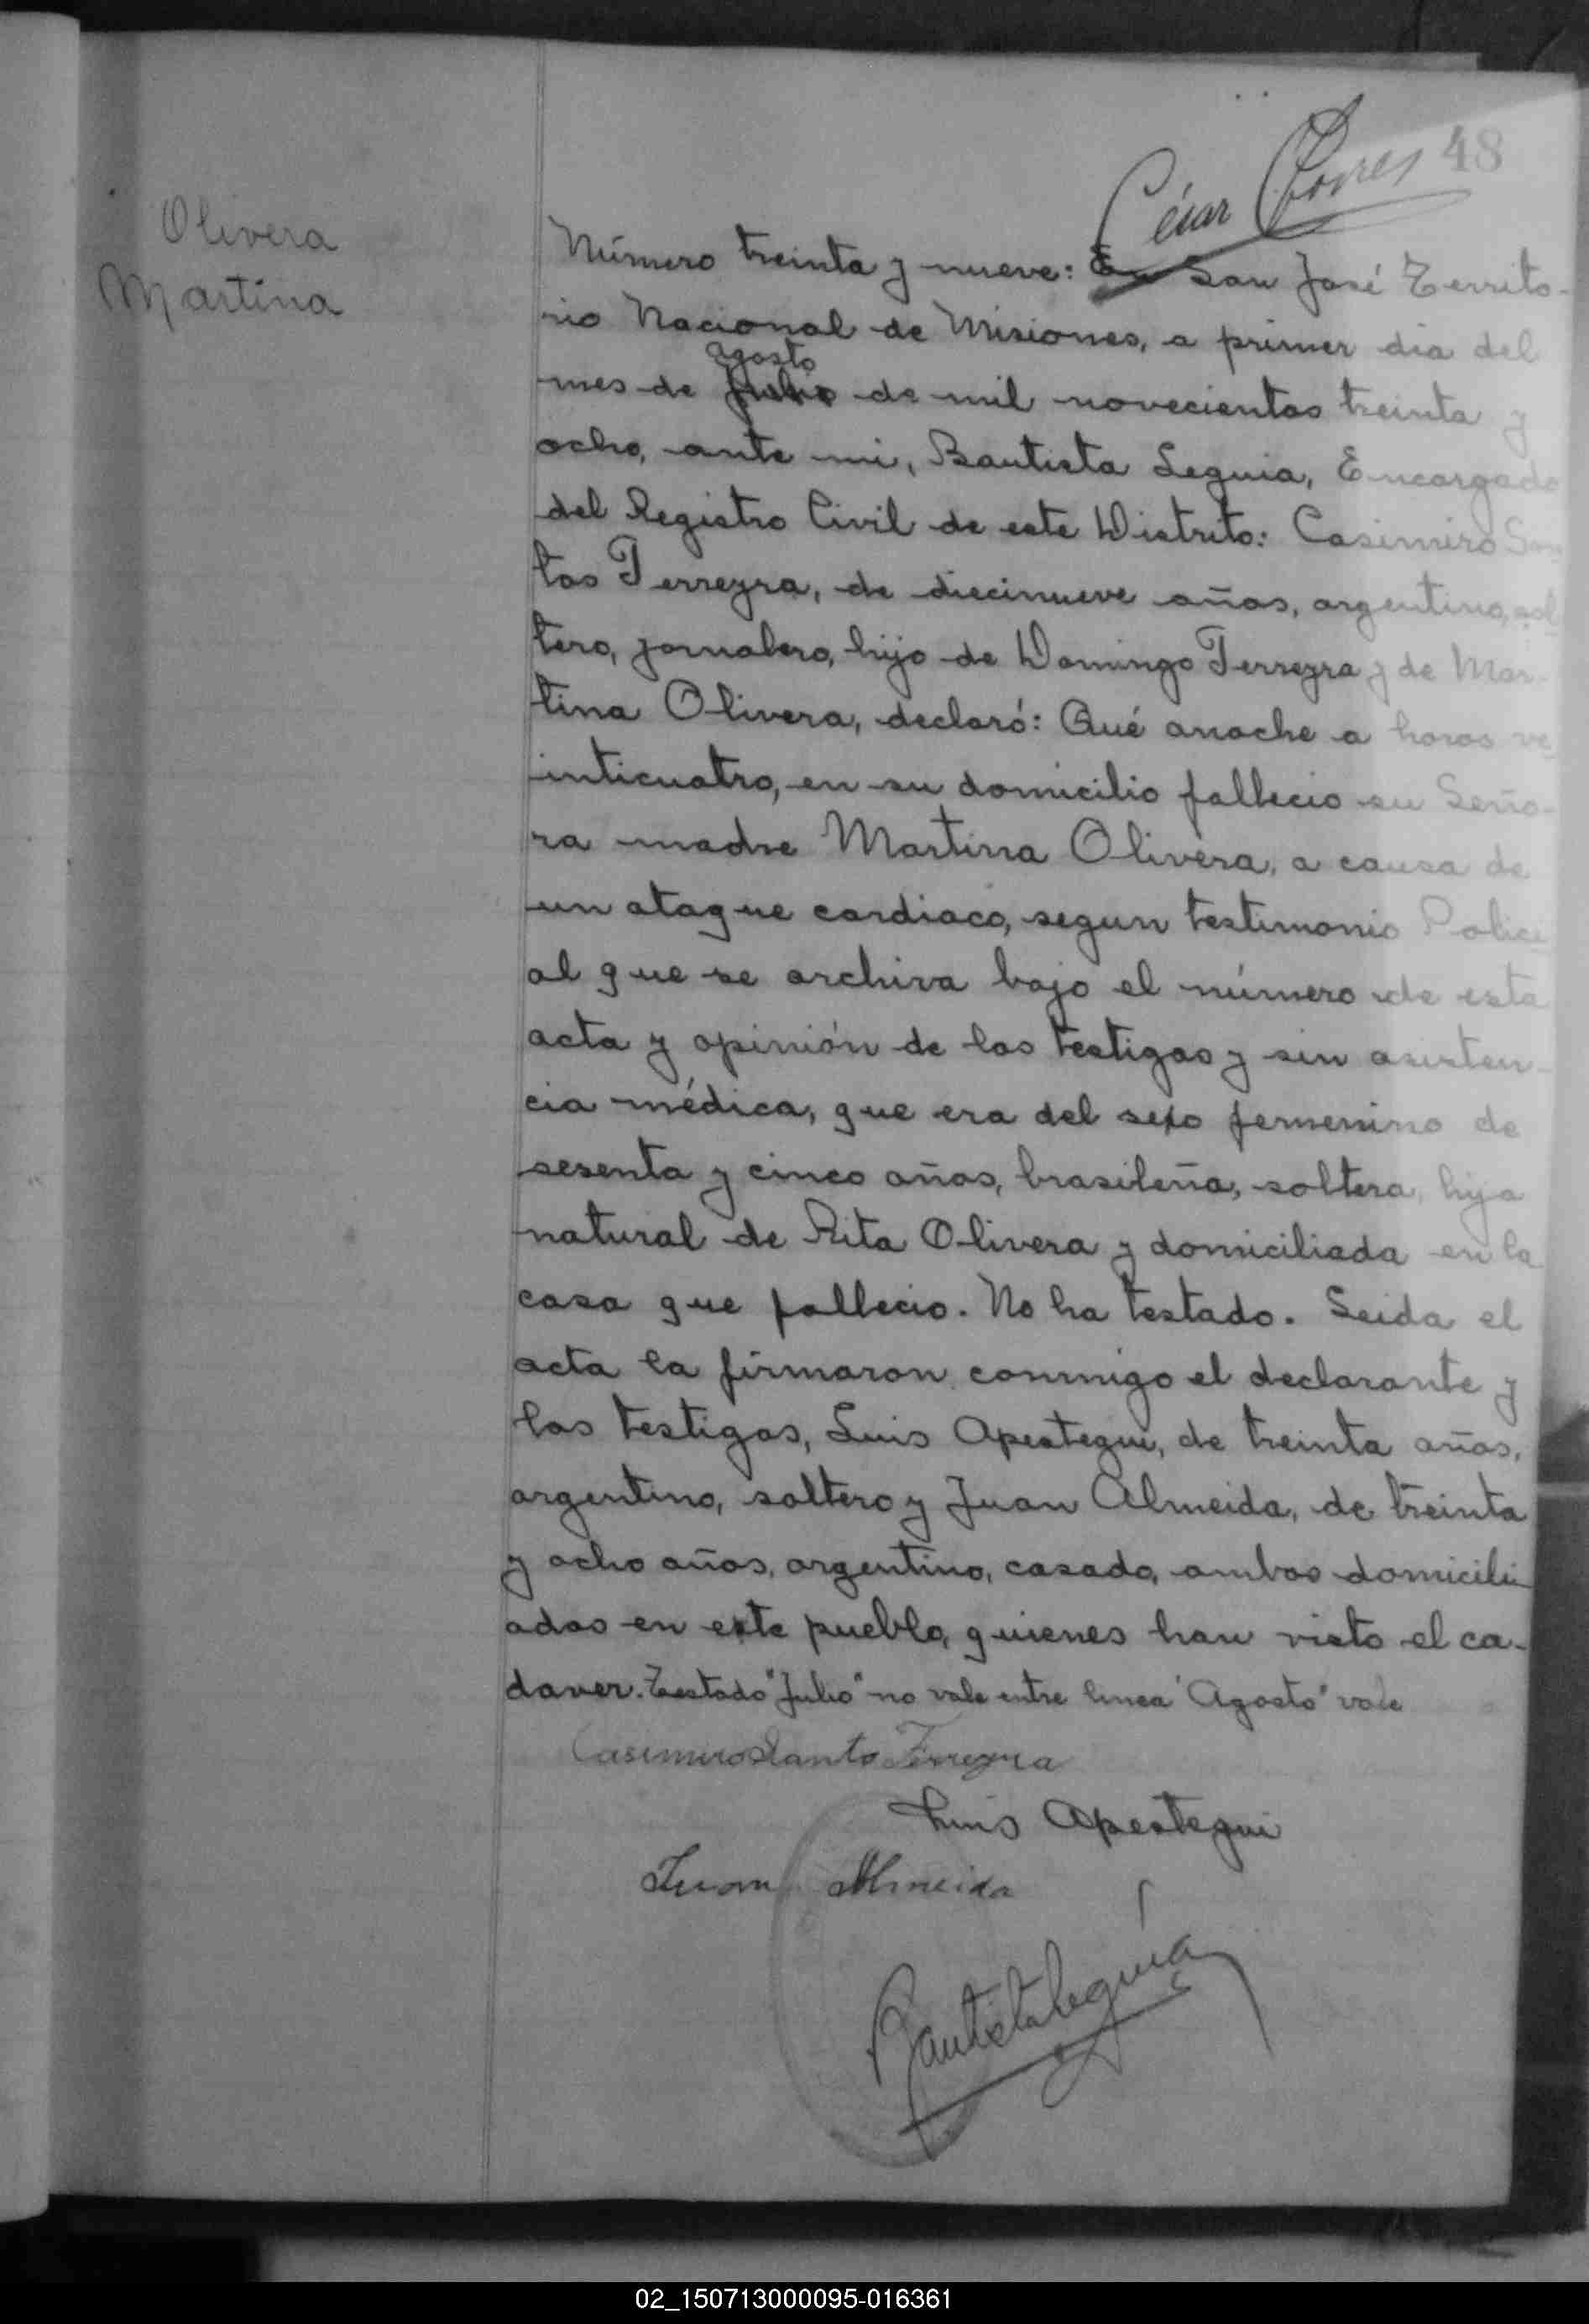 48
César Torres
Olivera
Martina
Número treinta y nueve: En San José Territo-
rio Nacional de Misiones, a primer dia del
agosto
mes de Julio de mil novecientos treinta y
ocho, ante mi, Bautista Leguia, Encargado
del Registro Civil de este Distrito: Casimiro San
tos Ferreyra, de diecinueve años, argentino, sol
tero, jornalero, hijo de Domingo Ferreyra y de Mar-
tina Olivera, declaró: Qué anoche a horas ve
inticuatro, en su domicilio fallecio su Seño-
ra madre Martina Olivera, a causa de
un ataque cardiaco, segun testimonio Polici
al que se archiva bajo el número de esta
acta y opinión de los testigos y sin asisten-
cia médica, que era del sexo femenino de
sesenta y cinco años, brasileña, soltera, hija
natural de Rita Olivera y domiciliada en la
casa que fallecio. No ha testado. Leida el
acta la firmaron conmigo el declarante y
los testigos, Luis Apestegui, de treinta años,
argentino, soltero y Juan Almeida, de treinta
y ocho años, argentino, casado, ambos domicili
ados en este pueblo, quienes han visto el ca-
daver. Testado "Julio" no vale entre linea "Agosto" vale
Casimiro Santo Ferreyra
Luis Apestegui
Juan Almeida
Bautista Leguía
02_150713000095-016361